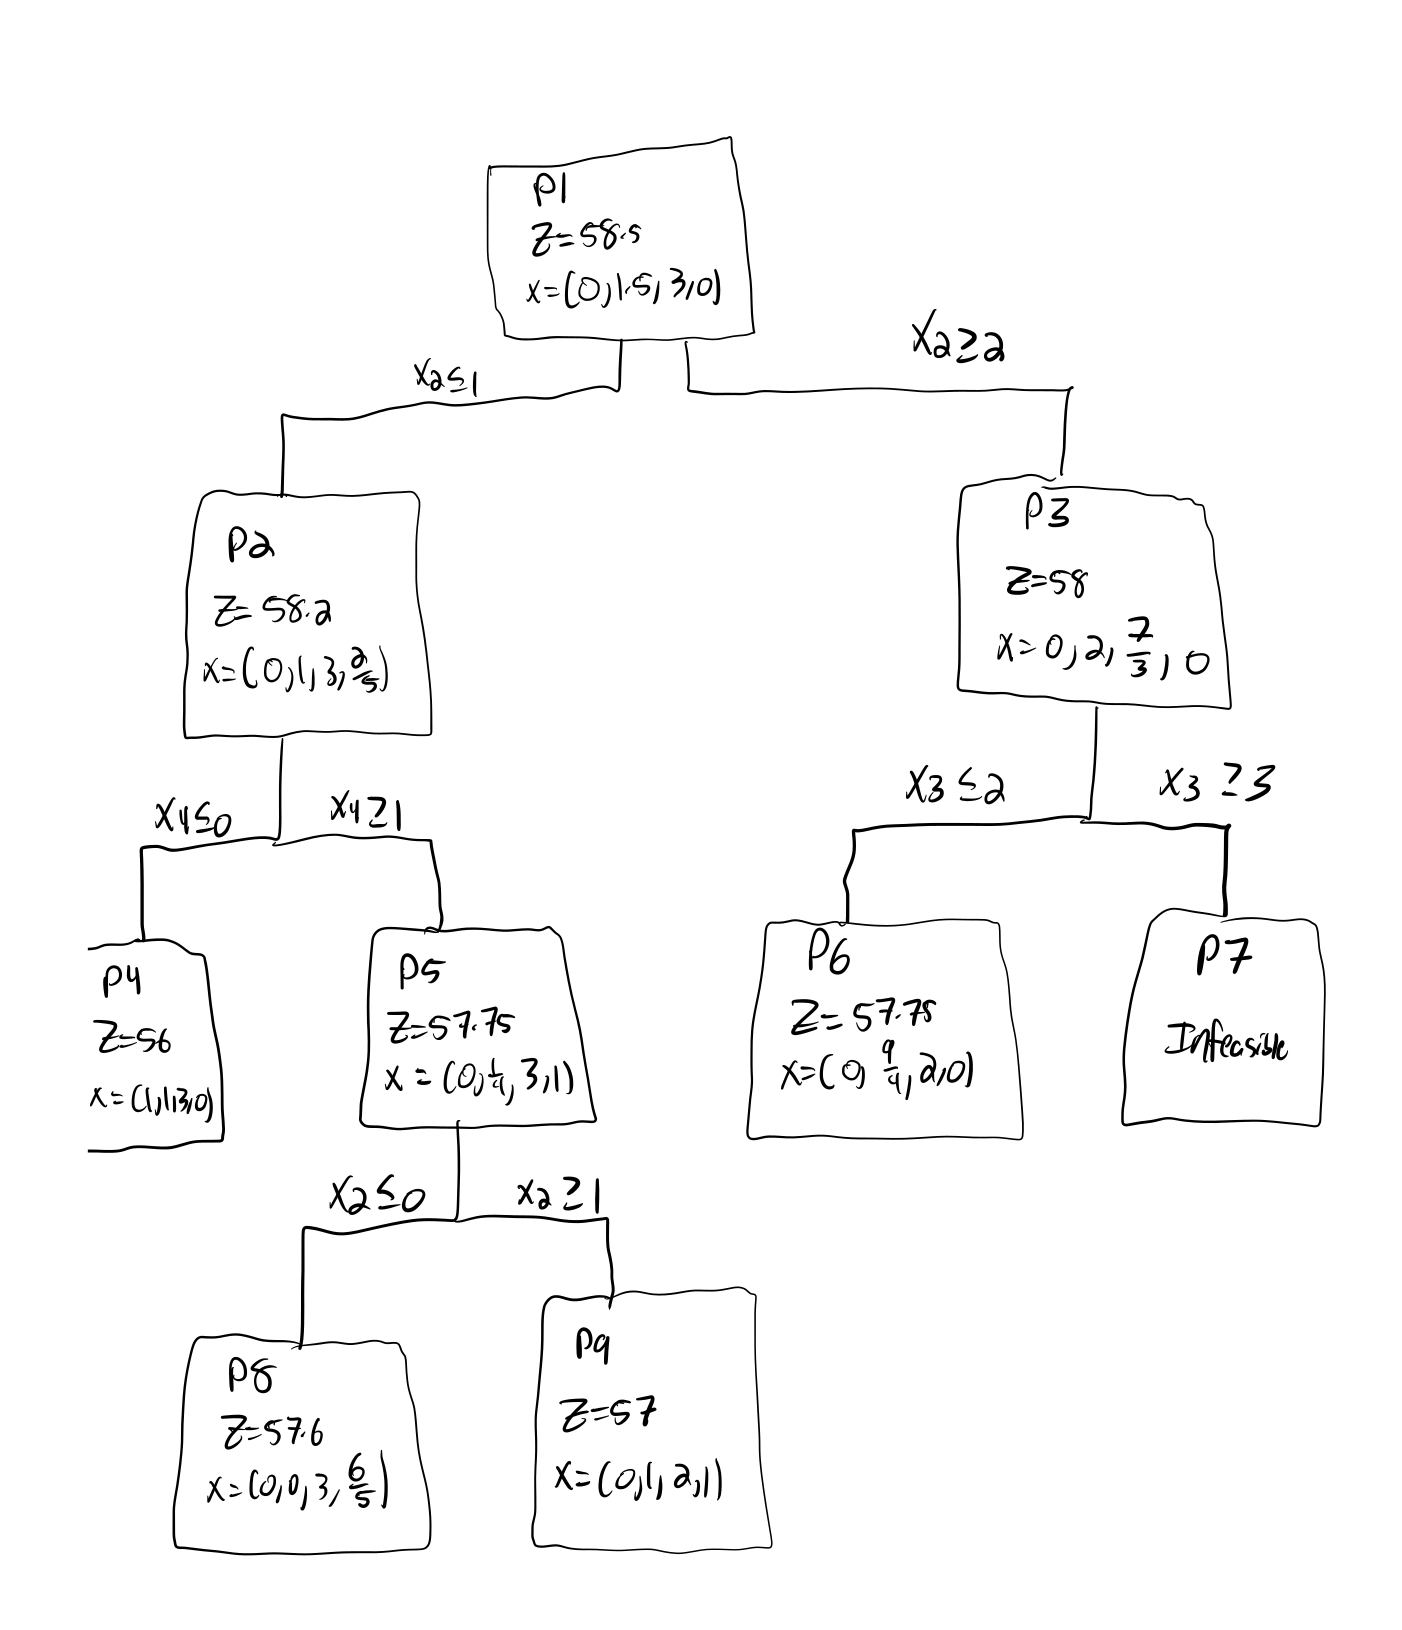 P1
Z=58.5
x=(0,1.5,3,0)
x2≤1
x2≥2
P2
Z=58.2
x=(0,1,3,2/5)
P3
Z=58
x=0,2,7/3,0
x4≤0
x4≥1
x3≤2
x3≥3
P4
Z=56
x=(1,1,3,0)
P5
Z=57.75
x=(0,1/4,3,1)
P6
Z=57.75
x=(0,9/4,2,0)
P7
Infeasible
x2≤0
x2≥1
P8
Z=57.6
x=(0,0,3,6/5)
P9
Z=57
x=(0,1,2,1)